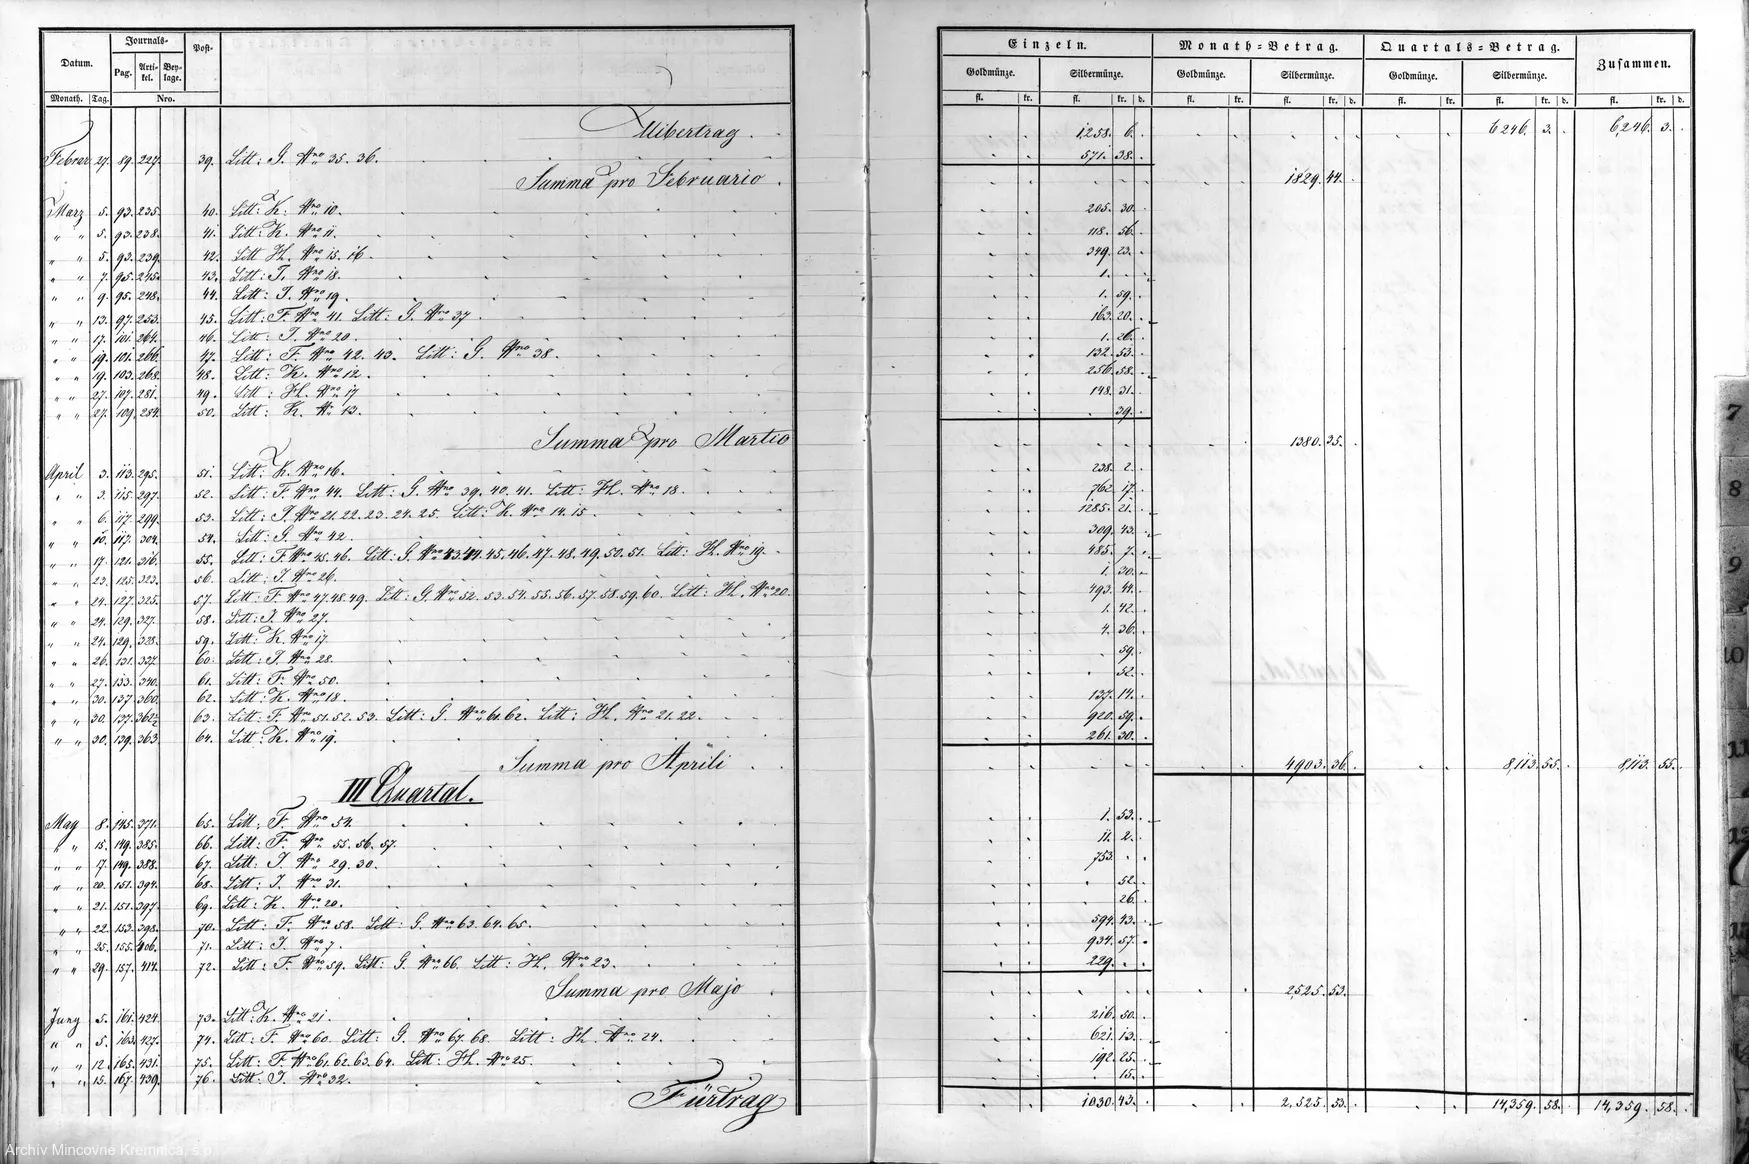 Datum. Journals- Post- Einzeln. Monath-Betrag. Quartals-Betrag. Zusammen.
Pag. Arti-kel. Bey-lage. Goldmünze. Silbermünze. Goldmünze. Silbermünze. Goldmünze. Silbermünze.
Monath. Tag. Nro. fl. kr. fl. kr. d. fl. kr. fl. kr. d. fl. kr. fl. kr. d. fl. kr. d.
Uibertrag 1,258. 6. 6246. 3. 6,246. 3.
Februar 27. 89. 227. 39. Litt: G. Nro 35. 36. 571. 38.
Summa pro Februario 1829. 44.
Marz 5. 93. 235. 40. Litt: K. Nro 10. 205. 30.
" " 5. 93. 238. 41. Litt: K. Nro 11. 118. 56.
" " 5. 93. 239. 42. Litt H. Nro 15. 16. 349. 23.
" " 7. 95. 245. 43. Litt: I. Nro 18. 1.
" " 9. 95. 248. 44. Litt: I. Nro 19. 1. 59.
" " 13. 97. 253. 45. Litt: F. Nro 41. Litt: G. Nro 37. 163. 20.
" " 17. 101. 264. 46. Litt: I. Nro 20. 1. 26.
" " 19. 101. 266. 47. Litt: F. Nro 42. 43. Litt: G. Nro 38. 132. 53.
" " 19. 103. 268. 48. Litt: K. Nro 12. 256. 58.
" " 27. 107. 281. 49. Litt: H. Nro 17 148. 31.
" " 27. 109. 284. 50. Litt: K. Nr 13. 39.
Summa pro Martio 1380. 35.
April 3. 113. 295. 51. Litt: K. Nro 16. 238. 2.
" " 3. 115. 297. 52. Litt: F. Nro 44. Litt: G. Nro 39. 40. 41. Litt: H. Nro 18. 762. 17.
" " 6. 117. 299. 53. Litt: I. Nro 21. 22. 23. 24. 25. Litt: K. Nro 14. 15. 1285. 21.
" " 10. 117. 304. 54. Litt: G. Nro 42. 309. 43.
" " 17. 121. 316. 55. Litt: F. Nro 45. 46. Litt: G. Nro 43. 44. 45. 46. 47. 48. 49. 50. 51. Litt: H. Nro 19. 485. 7.
" " 23. 125. 323. 56. Litt: I. Nro 26. 1. 30.
" " 24. 127. 325. 57. Litt: F. Nro 47. 48. 49. Litt: G. Nro 52. 53. 54. 55. 56. 57. 58. 59. 60. Litt: H. Nro 20. 493. 44.
" " 24. 129. 327. 58. Litt: I. Nro 27. 1. 42.
" " 24. 129. 328. 59. Litt: K. Nro 17. 4. 36.
" " 26. 131. 60. Litt: I. Nro 28. 59.
" " 27. 133. 340. 61. Litt: F. Nro 50. 52.
" " 30. 137. 360. 62. Litt: K. Nro 18. 137. 14.
" " 30. 137. 362 63. Litt: F. Nro 51. 52. 53. Litt: G. Nro 61. 62. Litt: H. Nro 21. 22. 920. 59.
" " 30. 139. 363 64. Litt: K. Nro 19. 261. 30.
Summa pro Aprili 4903. 36. 8,113. 55. 8,113. 55.
III Quartal.
May 8. 145. 371. 65. Litt: F. Nro 54. 1. 53.
" " 15. 149. 385. 66. Litt: F. Nro 55. 56. 57. 11. 2.
" " 17. 149. 388. 67. Litt: I. Nro 29. 30. 753.
" " 20. 151. 394. 68. Litt: I. Nro 31. 52.
" " 21. 151. 397. 69. Litt: K. Nro 20. 26.
" " 22. 153. 398. 70. Litt: F. Nro 58. Litt: G. Nro 63. 64. 65. 594. 43.
" " 25. 155. 406. 71. Litt: I. Nro 7. 934. 57.
" " 29. 157. 414. 72. Litt: F. Nro 59. Litt: G. Nro 66. Litt: H. Nro 23. 229.
Summa pro Majo 2,525. 53.
Juny 5. 161. 424. 73. Litt: K. Nro 21. 216. 50.
" " 5. 163. 427. 74. Litt: F. Nro 60. Litt: G. Nro 67. 68. Litt: H. Nro 24. 621. 13.
" " 12. 165. 431. 75. Litt: F. Nro 61. 62. 63. 64. Litt: H. Nro 25. 192. 25.
" " 15. 167. 439. 76. Litt: I. Nro 32. 15.
Fürtrag 1030. 43. 2,525. 53. 14,359. 58. 14,359. 58.
7
8
9
10
11
12
Archív Mincovne Kremnica, š.p.